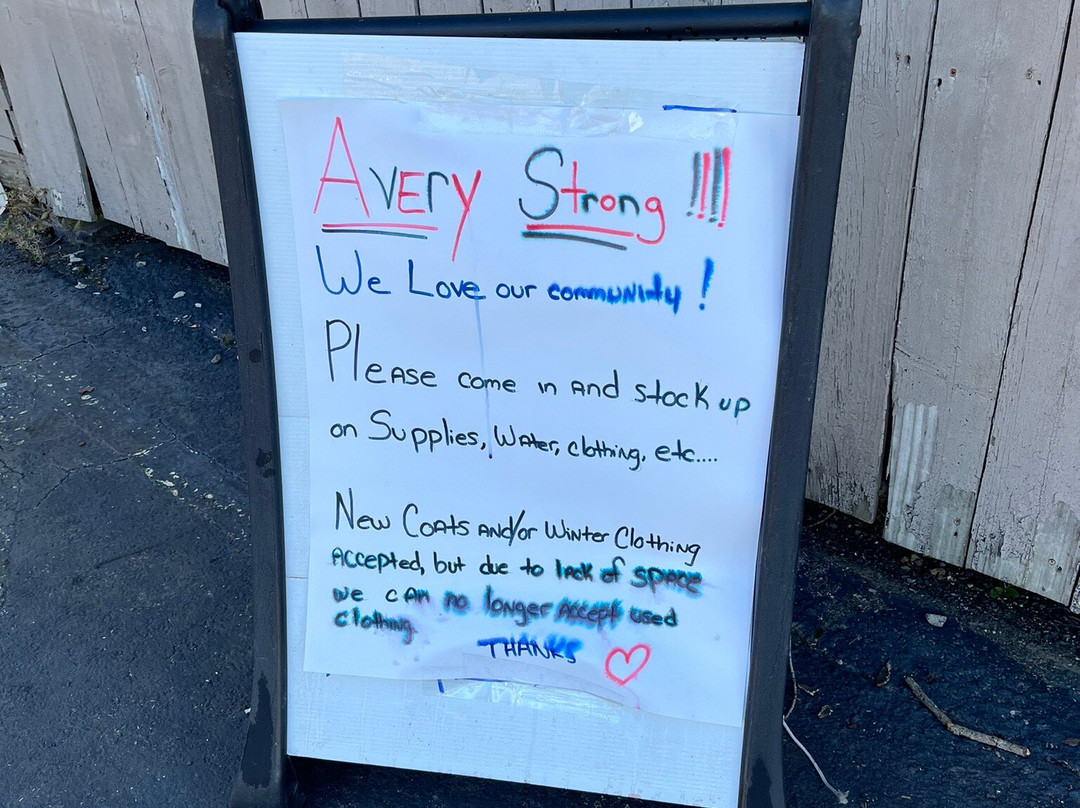 Avery Strong !!!!
We Love our community !
Please come in and stock up
on Supplies, Water, clothing, etc....
New Coats and/or Winter Clothing
Accepted, but due to lack of space
we can no longer accept used
clothing.
THANKS ♡